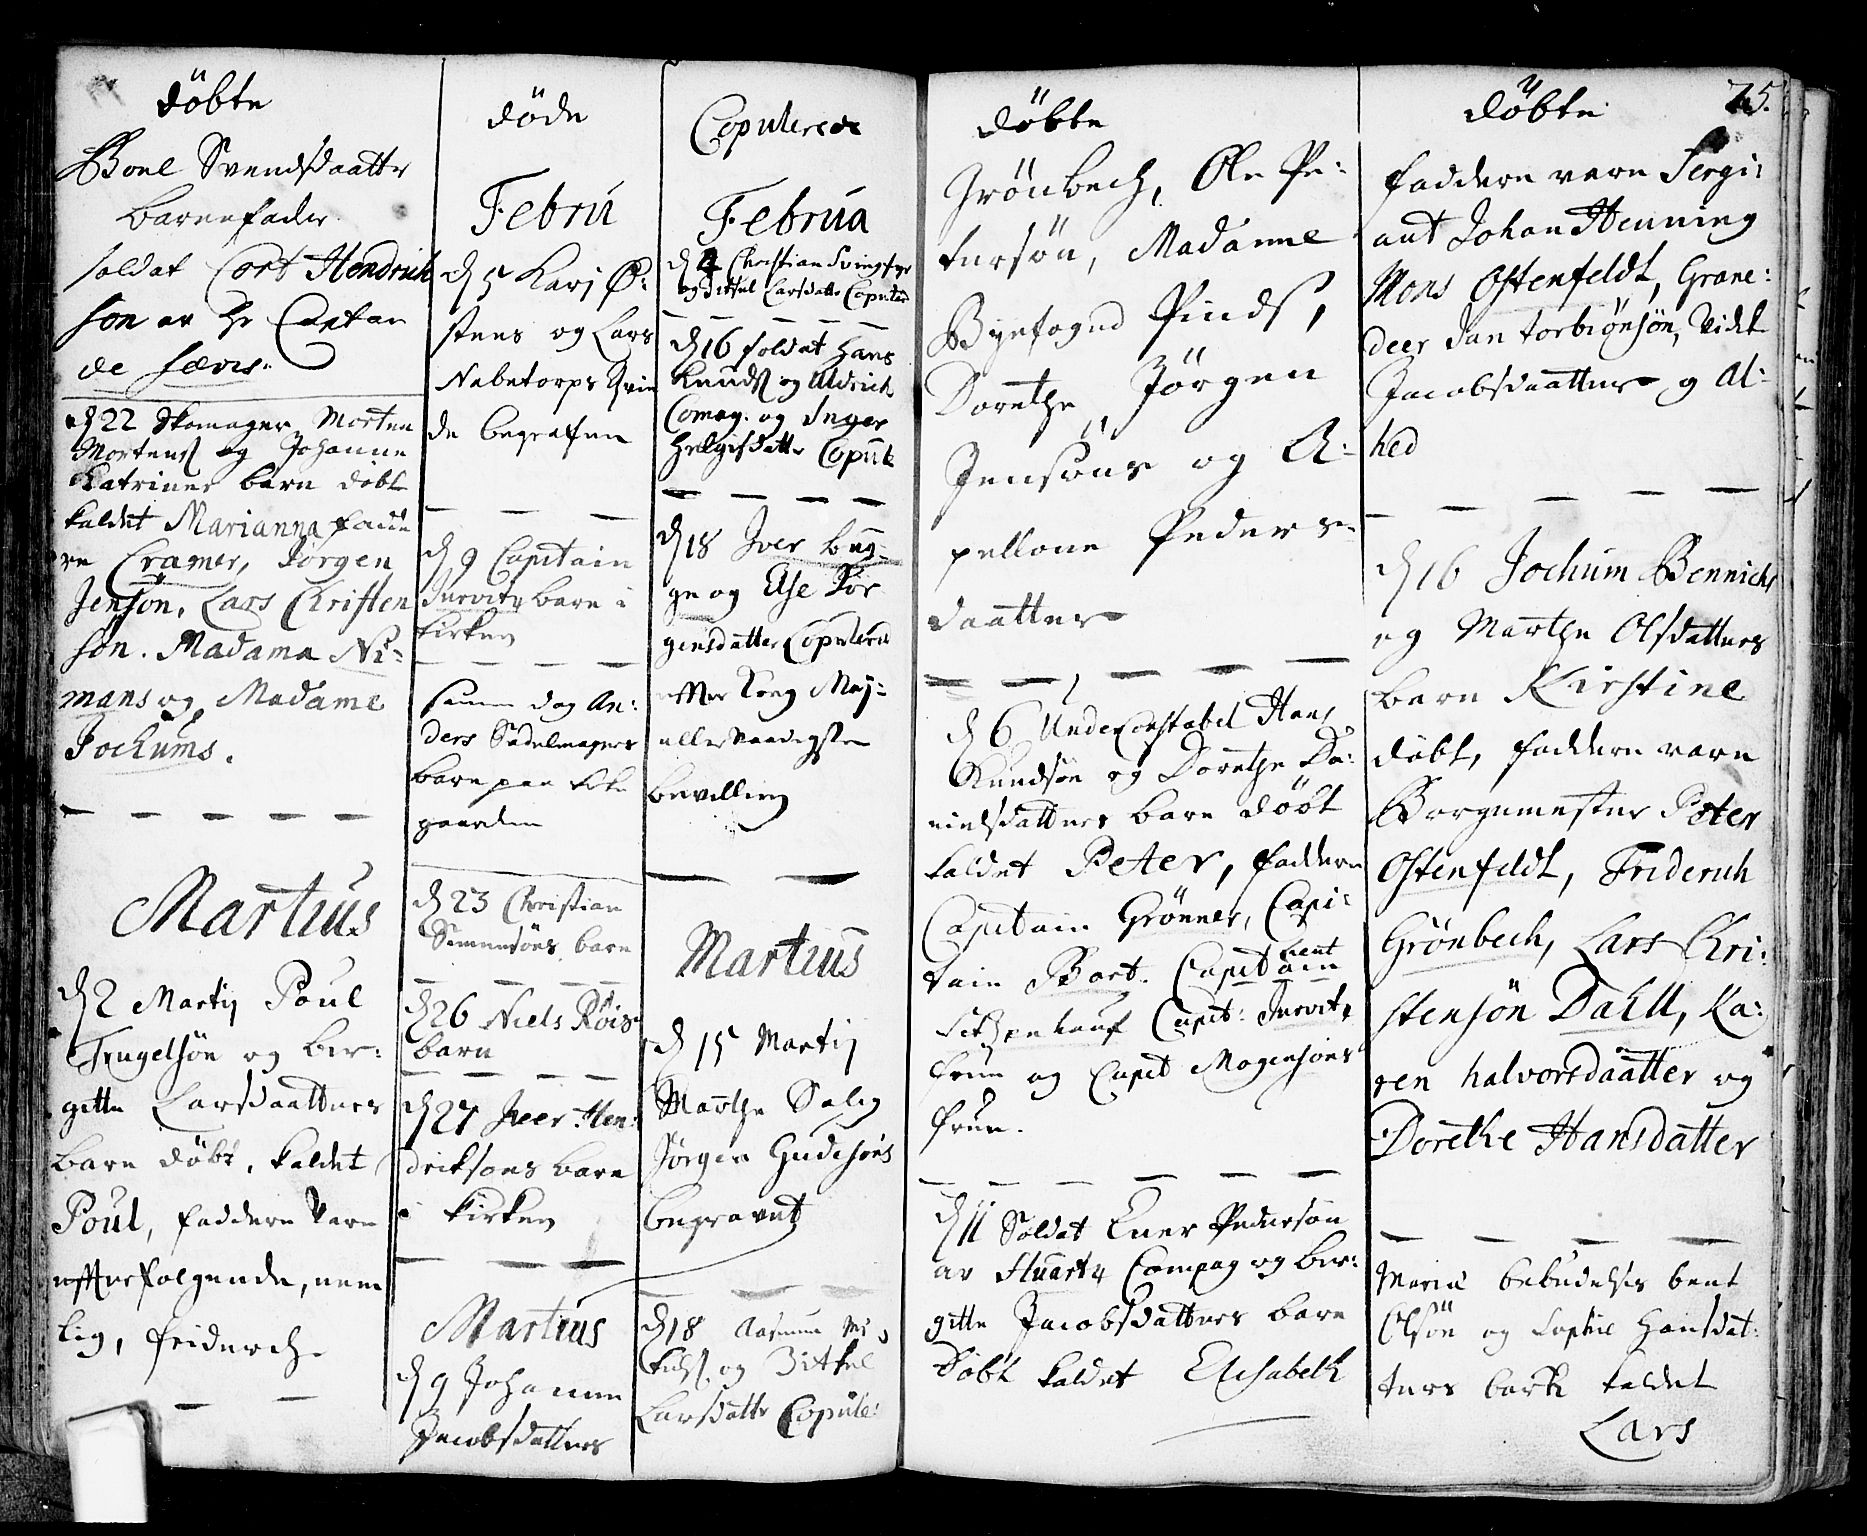 döbte
Boel Svendsdaatter
barnefader
soldat Cort Hendrich
son av Hr Captan
de særis.
d 22 Skomager Morten
Mortens og Johanne
Katrines barn döbt
kaldet Marianna fadde
re Cramer, Jörgen
Jensön, Lars Christen
sön. Madama Ni-
mans og Madame
Jochums.
Martius
d 2 Martij Poul
Trugelsön og Bir-
gitte Larsdaatters
barn döbt, kaldet
Poul, faddere vare
efterfølgende, nem
lig, friderch
döde
Febru
d 5 Karj Ö-
stens og Lars
Nabetorps Qvin
de begrafen
d 9 Capitain
Jurvits barn i
kirken
samme dag An-
ders Sadelmagers
barn paa kirke
gaarden
d 23 Christian
Simensöns barn
d 26 Niels Röis
barn
d 27 Peer Hen-
driksons barn
i kirken
Martius
d 9 Johanne
Jacobsdatters
Copulerede
Februa
d 4 Christian
og Sitsel Larsdatter Copulered
d 16 soldat Hans
Knuds og Uldrich
Comag. og Inger
Helgesdatter Copule
d 18 Iver Byg-
ge og Else Jör
gensdatter Copulered
efter Kong May-
allernaadigste
bevilling
Martius
d 15 Martij
Marthe Salig
Jörgen Gudesöns
begravet
d 18 Aasmun
og Sitsel
Larsdatter Copule:
döbte
Grönbech, Ole Pe-
tersön, Madame
Byefogud Pinds,
Dorethe Jörgen
Jensöns og A-
pellone Peders-
daatter
d 6 UnderConstabel Hans
Knudsön og Dorethe Da-
nielsdatters barn döbt
kaldet Peter, faddere
Capitain Grönner, Capi-
tain Bort. Capit Lieut
Capit: Jurvits
frue og Capit Mogensöns
frue.
d 11 Soldat Peer Pedersön
av Stuarts Compag og Bir-
gitte Jacobsdatters barn
döbt kaldet Elisabeth
döbte 75.
faddere vare Sergi-
ant Johan Henning
Mons Ostenfeldt, Grane-
deer Jan Torbiönsön,
Jacobsdaatter og Al-
hed
d 16 Jochum Bennichs
og Marthe Olsdatters
barn Kirstine
döbt, faddere vare
Borgemester Peter
Ostenfeldt, Friderich
Grönbech, Lars Chri-
stensön Dahll, Ka-
ren halvorsdaatter og
Dorethe Hansdatter
Mariæ bebudelses bent
Olsön og Sophie Hansdat-
ters barn kaldet
Lars